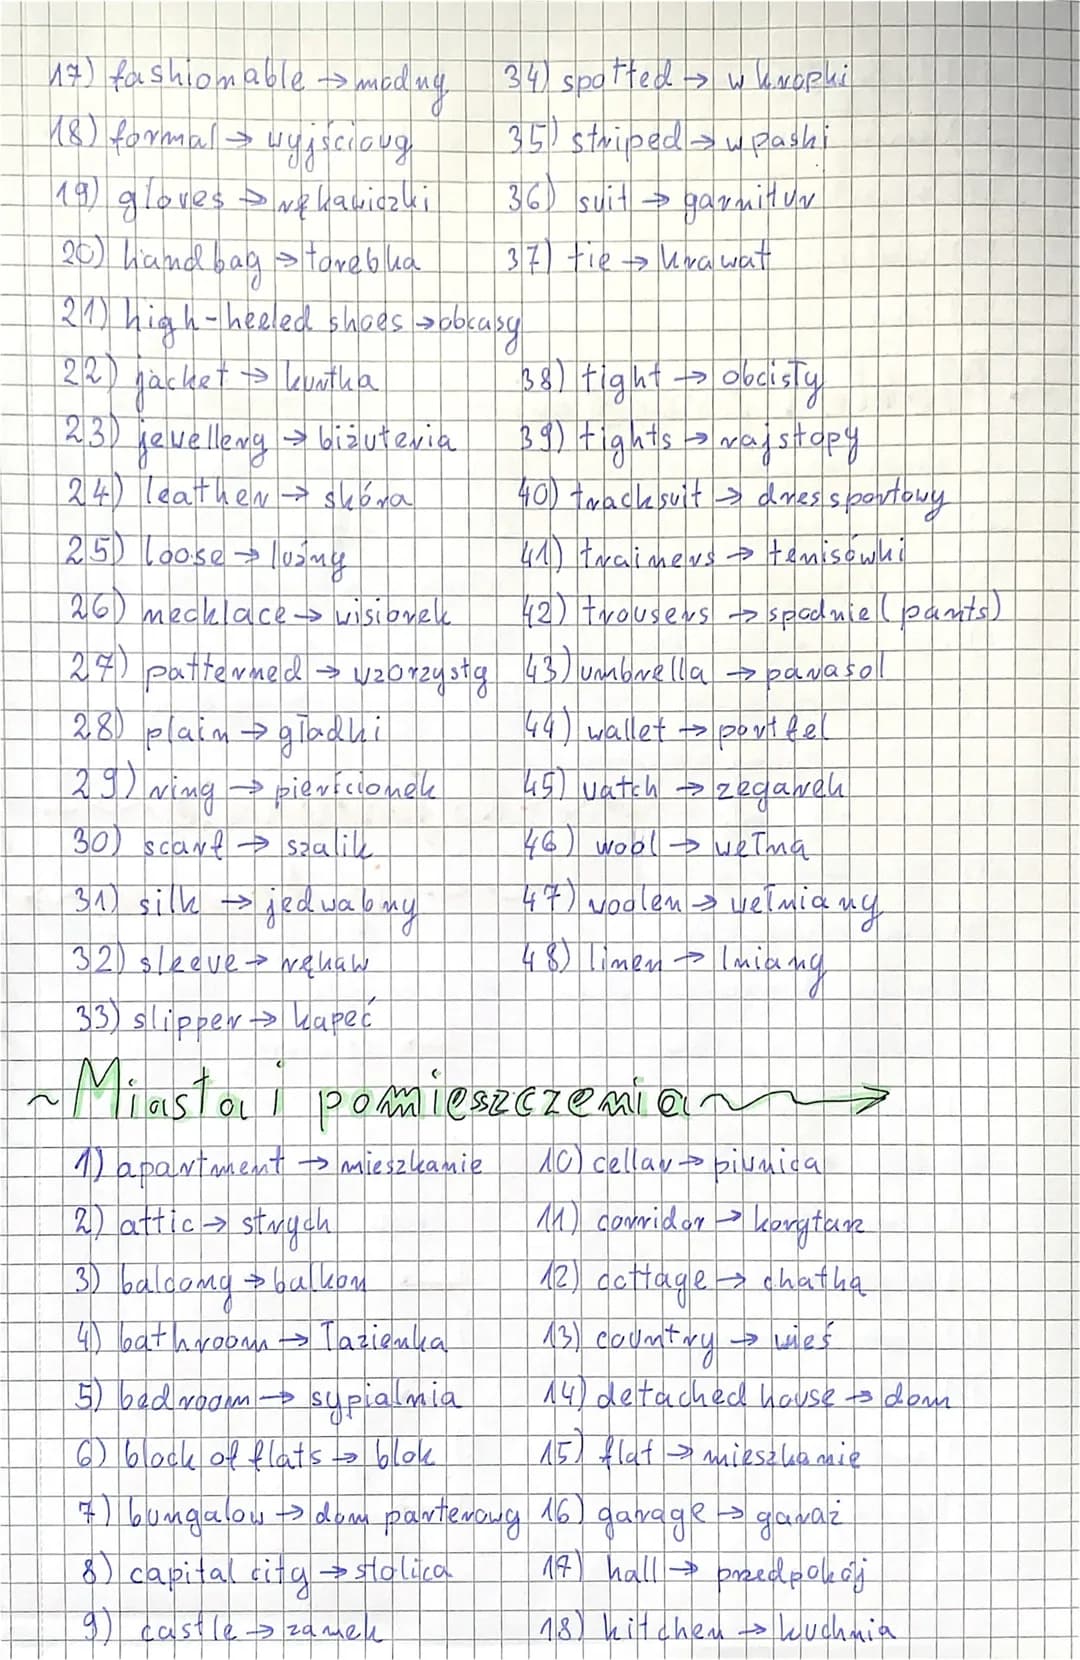 17) fashionable → modny
18) formal → wyjściowy
19) gloves → rękawiczki
20) handbag → torebka
21) high-heeled shoes → obcasy
22) jacket → kurtka
23) jewellery → biżuteria
24) leather → skóra
25) loose → luźny
26) necklace → wisiorek
27) patterned → wzorzysty
28) plain → gładki
29) ring → pierścionek
30) scarf → szalik
31) silk → jedwabny
32) sleeve → rękaw
33) slipper → kapeć
34) spotted → w kropki
35) striped → w paski
36) suit → garnitur
37) tie → krawat
38) tight → obcisły
39) tights → rajstopy
40) tracksuit → dres sportowy
41) trainers → tenisówki
42) trousers → spodnie (pants)
43) umbrella → parasol
44) wallet → portfel
45) watch → zegarek
46) wool → wełna
47) woolen → wełniany
48) linen → lniany
~Miasta i pomieszczenia
1) apartment → mieszkanie
2) attic → strych
3) balcony → balkon
4) bathroom → łazienka
5) bedroom → sypialnia
6) block of flats → blok
7) bungalow → dom parterowy
8) capital city → stolica
9) castle → zamek
10) cellar → piwnica
11) corridor → korytarz
12) cottage → chatka
13) country → wieś
14) detached house → dom
15) flat → mieszkanie
16) garage → garaż
17) hall → przedpokój
18) kitchen → kuchnia